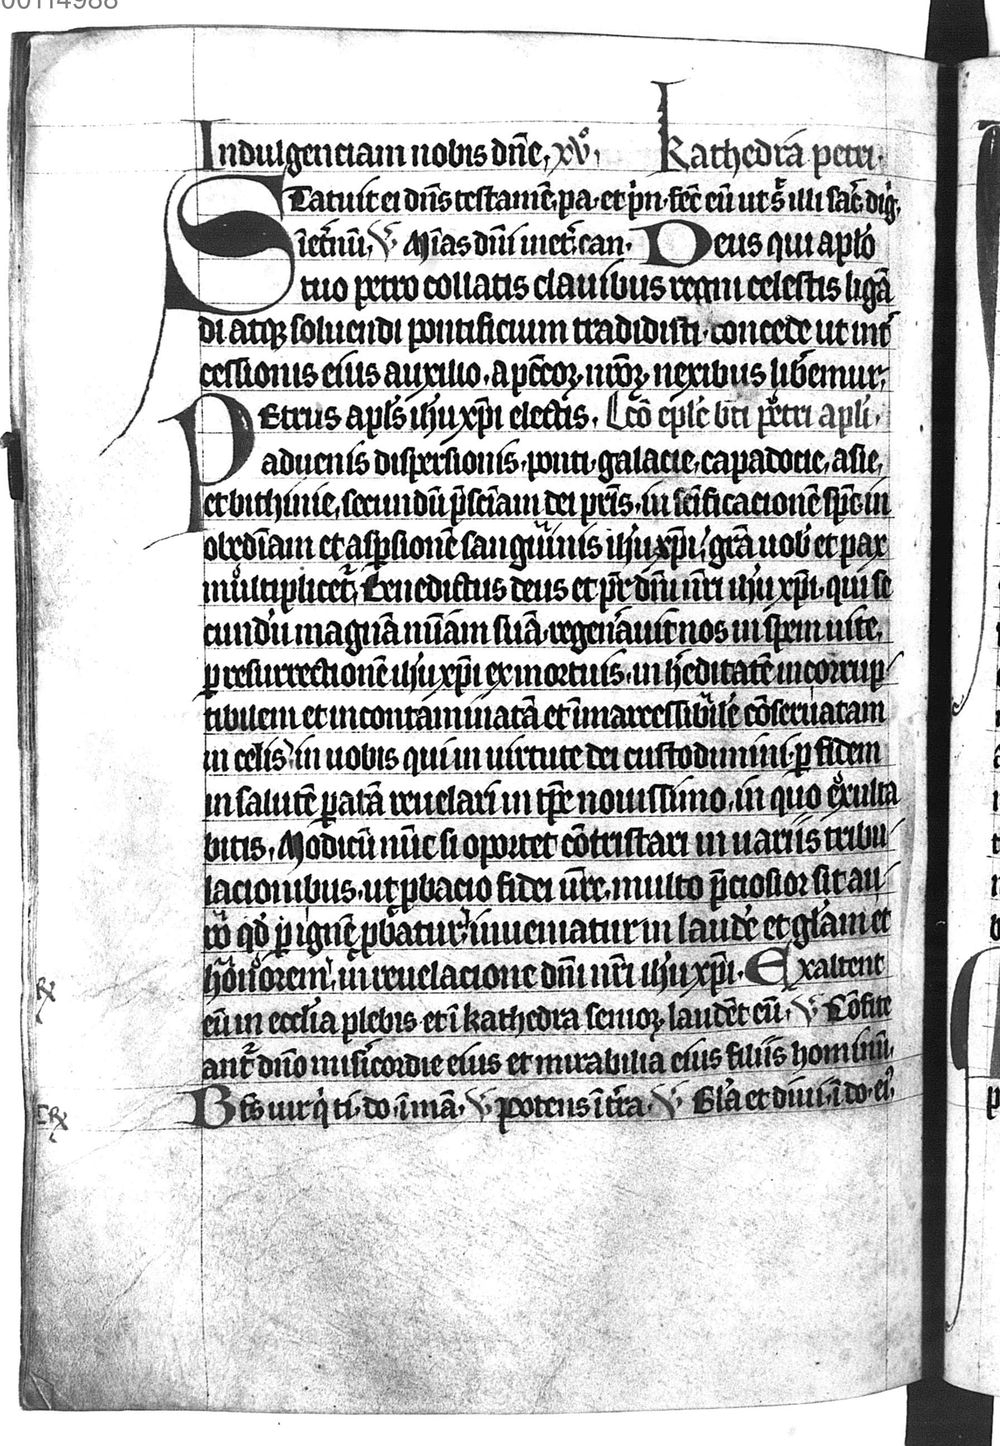 00114988
Indulgenciam nobis dn̄e, xvͦ, kathedra petri.
Statuit ei dn̄s testamē. pa. et p̄n. fec̄ eū ut s̄ illi sac̄. diḡ.
ī et̄nū, V̄. Mīas dn̄i ī et̄. can. Deus qui aplō
tuo petro collatis clauibus regni celestis ligā
di atqꝫ soluendi pontificium tradidisti. concede ut int̄
cessionis eius auxilio. a pc̄coꝝ nr̄oꝝ nexibus lib̄emur,
Petrus apl̄s ih̄u xp̄i electis. Lcō epl̄e bt̄i petri apl̄i.
aduenis dispersionis. ponti. galacie, capadocie, asie,
et bithinie, secundū p̄sciam dei pr̄is. in sc̄ificacionē sp̄c. in
obediam et asp̄sionē sanguinis ih̄u xp̄i, gr̄a uob̄ et pax
multiplicet̄, Benedictus deus et pr̄ dn̄i nr̄i ih̄u xp̄i. qui se
cundū magnā mīam suā. regen̄auit nos in spem uite,
ꝑ resurrectionē ih̄u xp̄i ex mortuis. in h̄editatē incorrup
tibilem et incontaminatā et īmarcessibilē cōseruatam
in celis, in uobis qui in uirtute dei custodimini. ꝑ fidem
in salutē ꝑatā reuelari in tp̄re nouissimo, in quo exulta
bitis, Modicū nūc si oportet cōtristari in uariis tribu
lacionibus, ut ꝓbacio fidei ur̄e, multo p̄ciosior sit au
ro qd̄ ꝑ ignē ꝓbatur, inueniatur in laudē et gl̄am et
honorem, in reuelacione dn̄i nr̄i ih̄u xp̄i. Exaltent
eū in eccl̄ia plebis et ī kathedra senioꝝ laudēt eū, V̄. Cōfite
ant̄ dn̄o mis̄icordie eius et mirabilia eius filiis hominū,
Bt̄s uir q̄ ti. do. ī mā. V̄. Potens ī t̄ra. V̄. Gl̄a et diui. ī do. ei᷒.